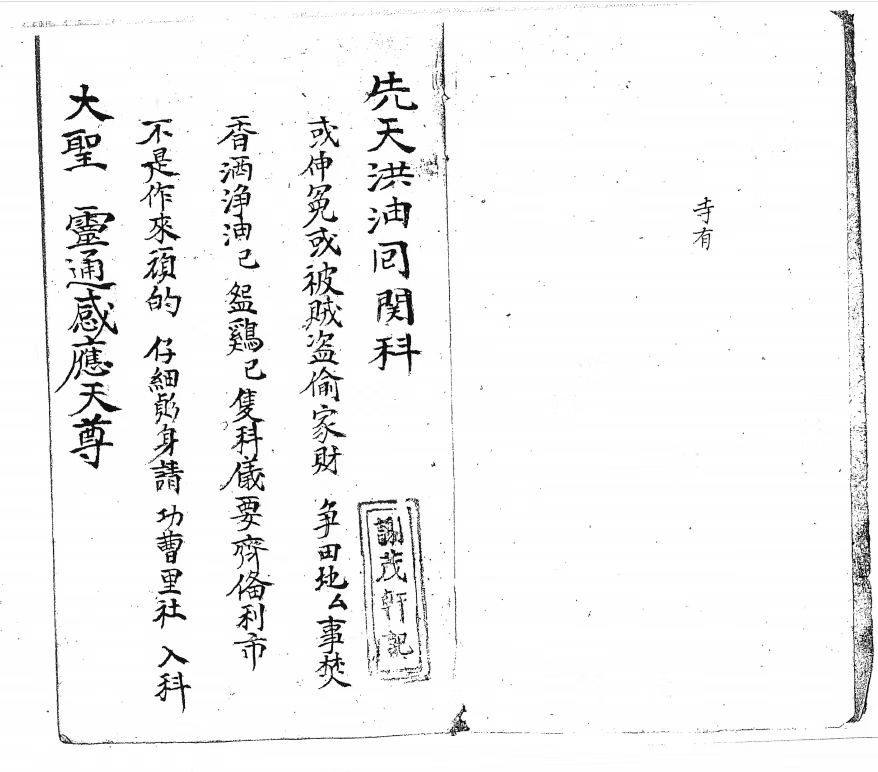 寺有
先天洪油囘関科
謝茂軒記
或伸冤或被賊盗偷家財 争田地厶事焚
香洒浄油已盌鷄已隻科儀要齊俻利市
不是作來頑的 仔細躬身請 功曹里社 入科
大聖 靈通感應天尊